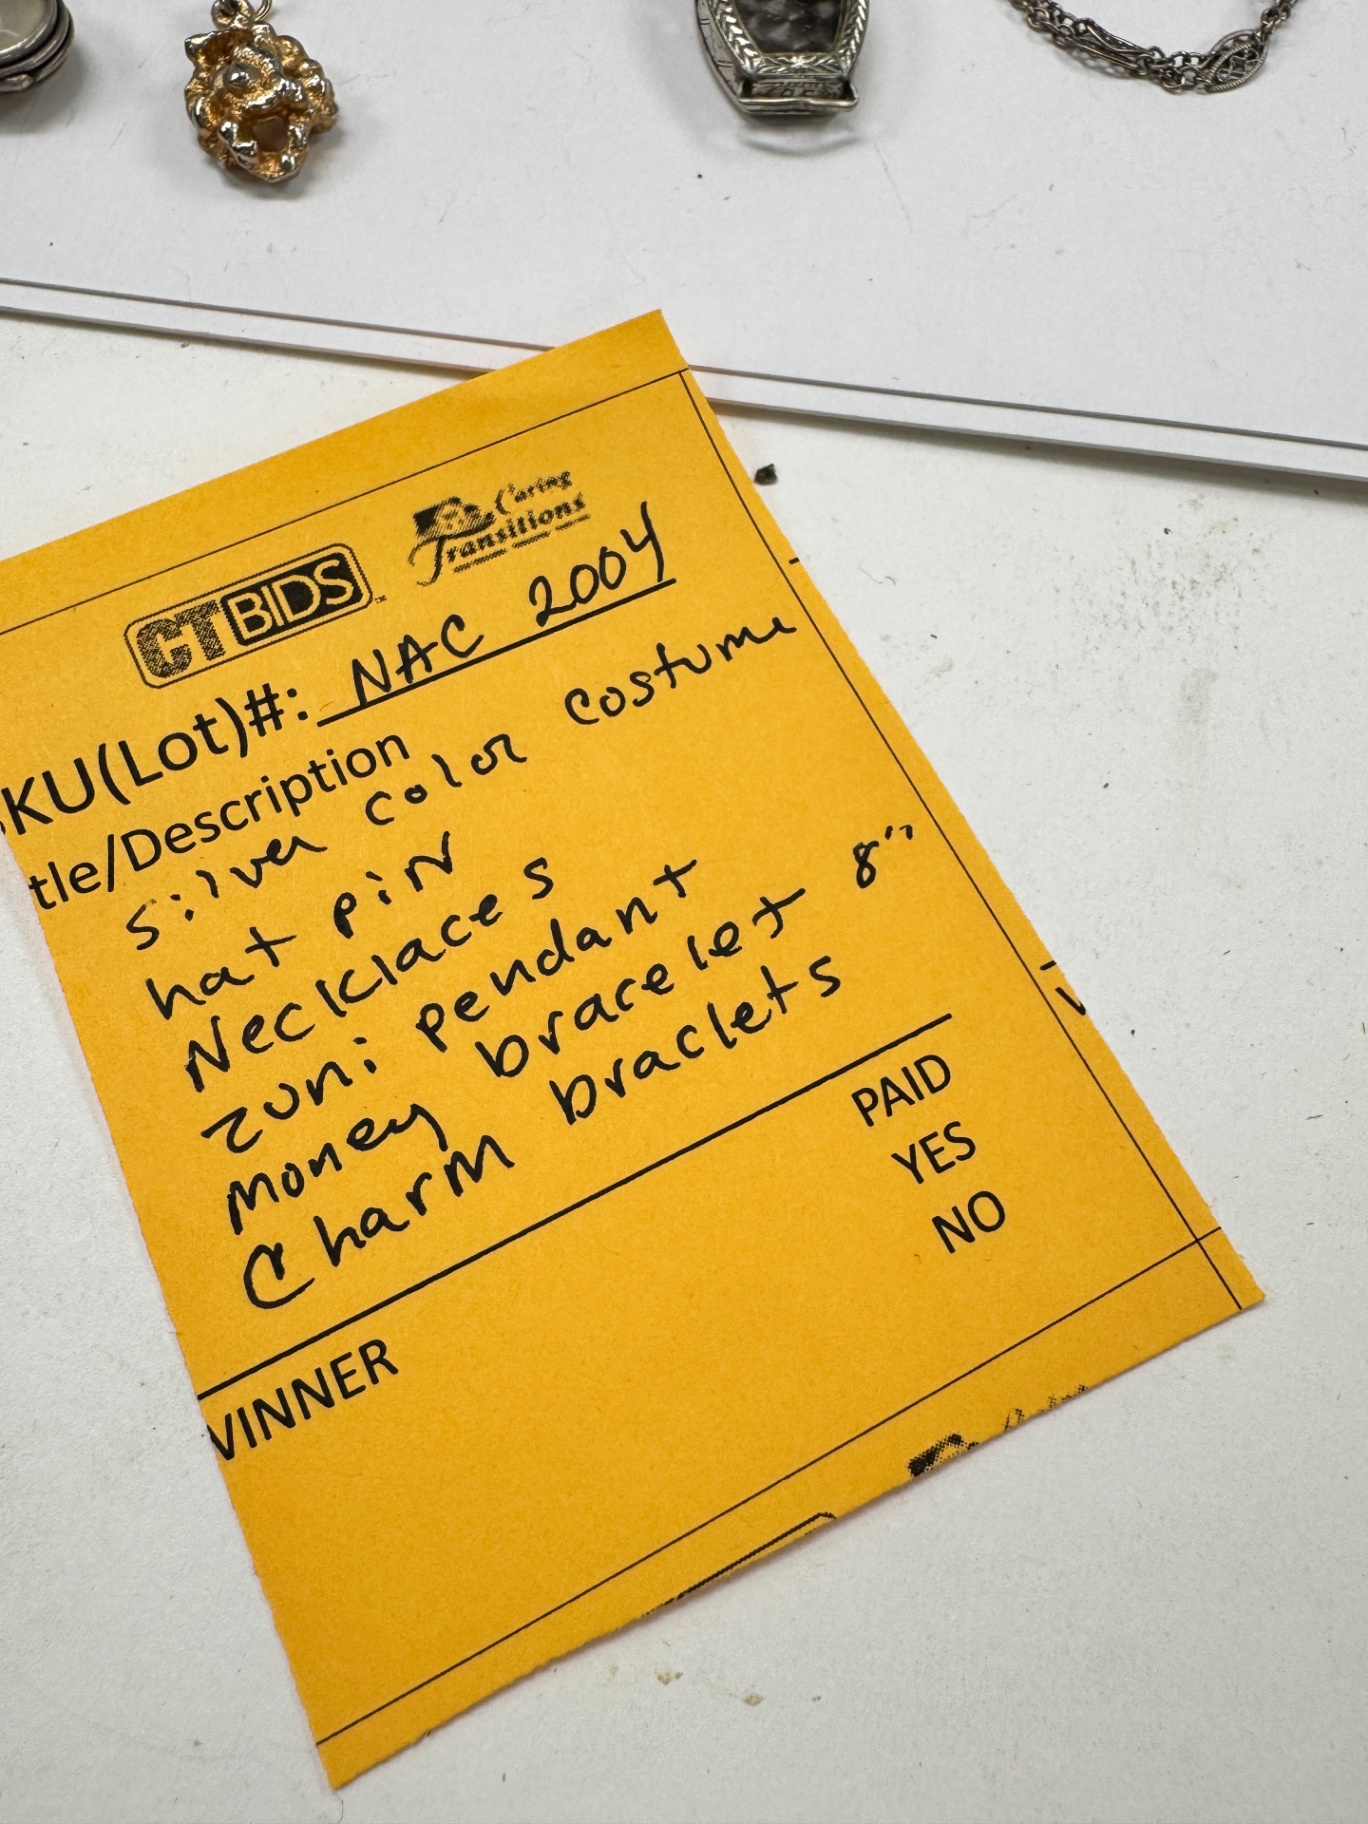 CTBIDS
Caring
Transitions
KU(Lot)#: NAC 2004
tle/Description
silver color costume
hat pin
Necklaces
zuni pendant
money bracelet 8"
Charm braclets
PAID
YES
NO
VINNER